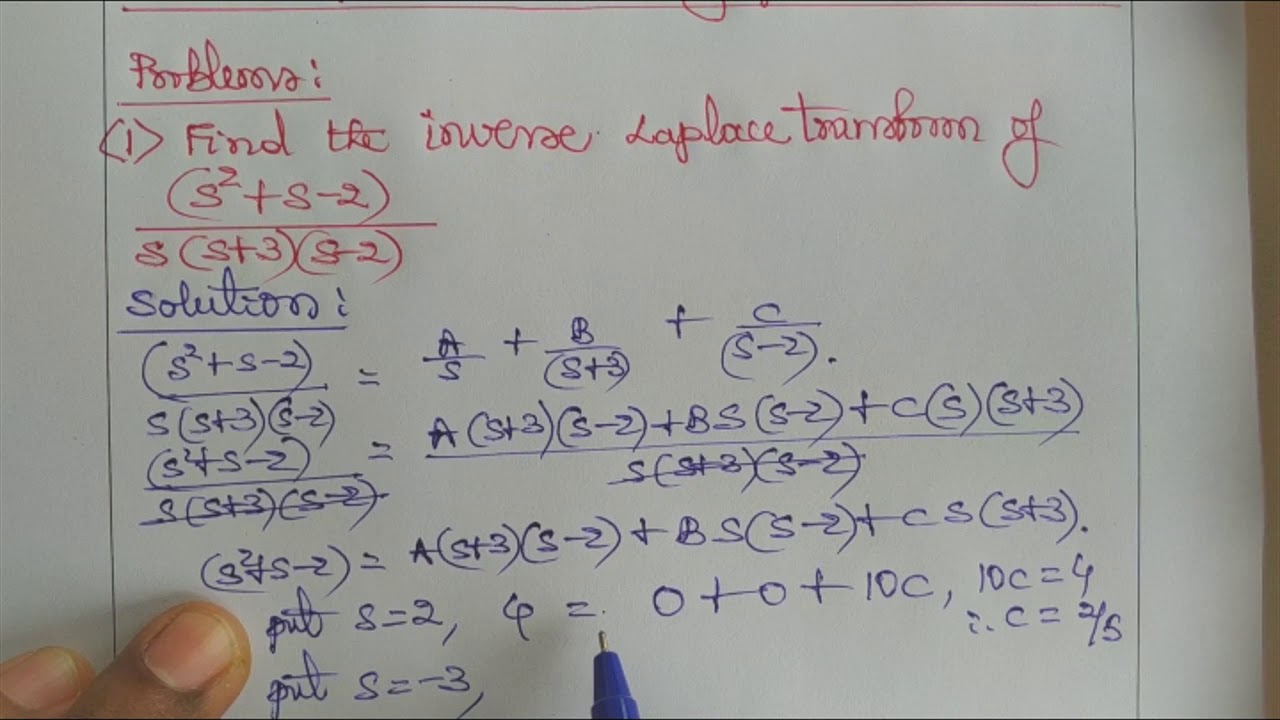 Problems:
(1) Find the inverse Laplace transform of
(s²+s-2)
s(s+3)(s-2)
Solution:
(s²+s-2) = A/s + B/(s+3) + C/(s-2).
s(s+3)(s-2)
(s²+s-2) = A(s+3)(s-2)+BS(s-2)+C(s)(s+3)
s(s+3)(s-2) s(s+3)(s-2)
(s²+s-2) = A(s+3)(s-2)+BS(s-2)+CS(s+3).
put s=2, 4 = 0+0+10C, 10C=4
∴ C = 2/5
put s=-3,